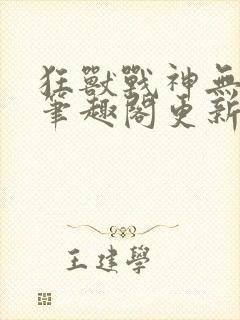 狂獸戰神無
筆趣閣更新
王建學